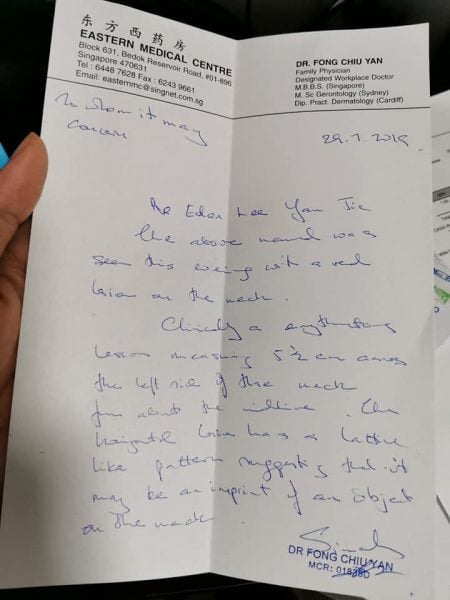 东方西药房
EASTERN MEDICAL CENTRE
Block 631, Bedok Reservoir Road, #01-896
Singapore 470631
Tel : 6448 7628 Fax : 6243 9661
Email: easternmc@singnet.com.sg
DR. FONG CHIU YAN
Family Physician
Designated Workplace Doctor
M.B.B.S. (Singapore)
M. Sc Gerontology (Sydney)
Dip. Pract. Dermatology (Cardiff)
To whom it may
concern
29.7.2019
Re Eden Lee Yan Jie
The above named was
seen this evening with a red
lesion on the neck.
Clinically a erythematous
lesion measuring 5 ½ cm across
the left side of the neck
from about the midline. The
horizontal lesion has a lattice
like pattern suggesting that it
may be an imprint of an object
on the neck
DR FONG CHIU YAN
MCR: